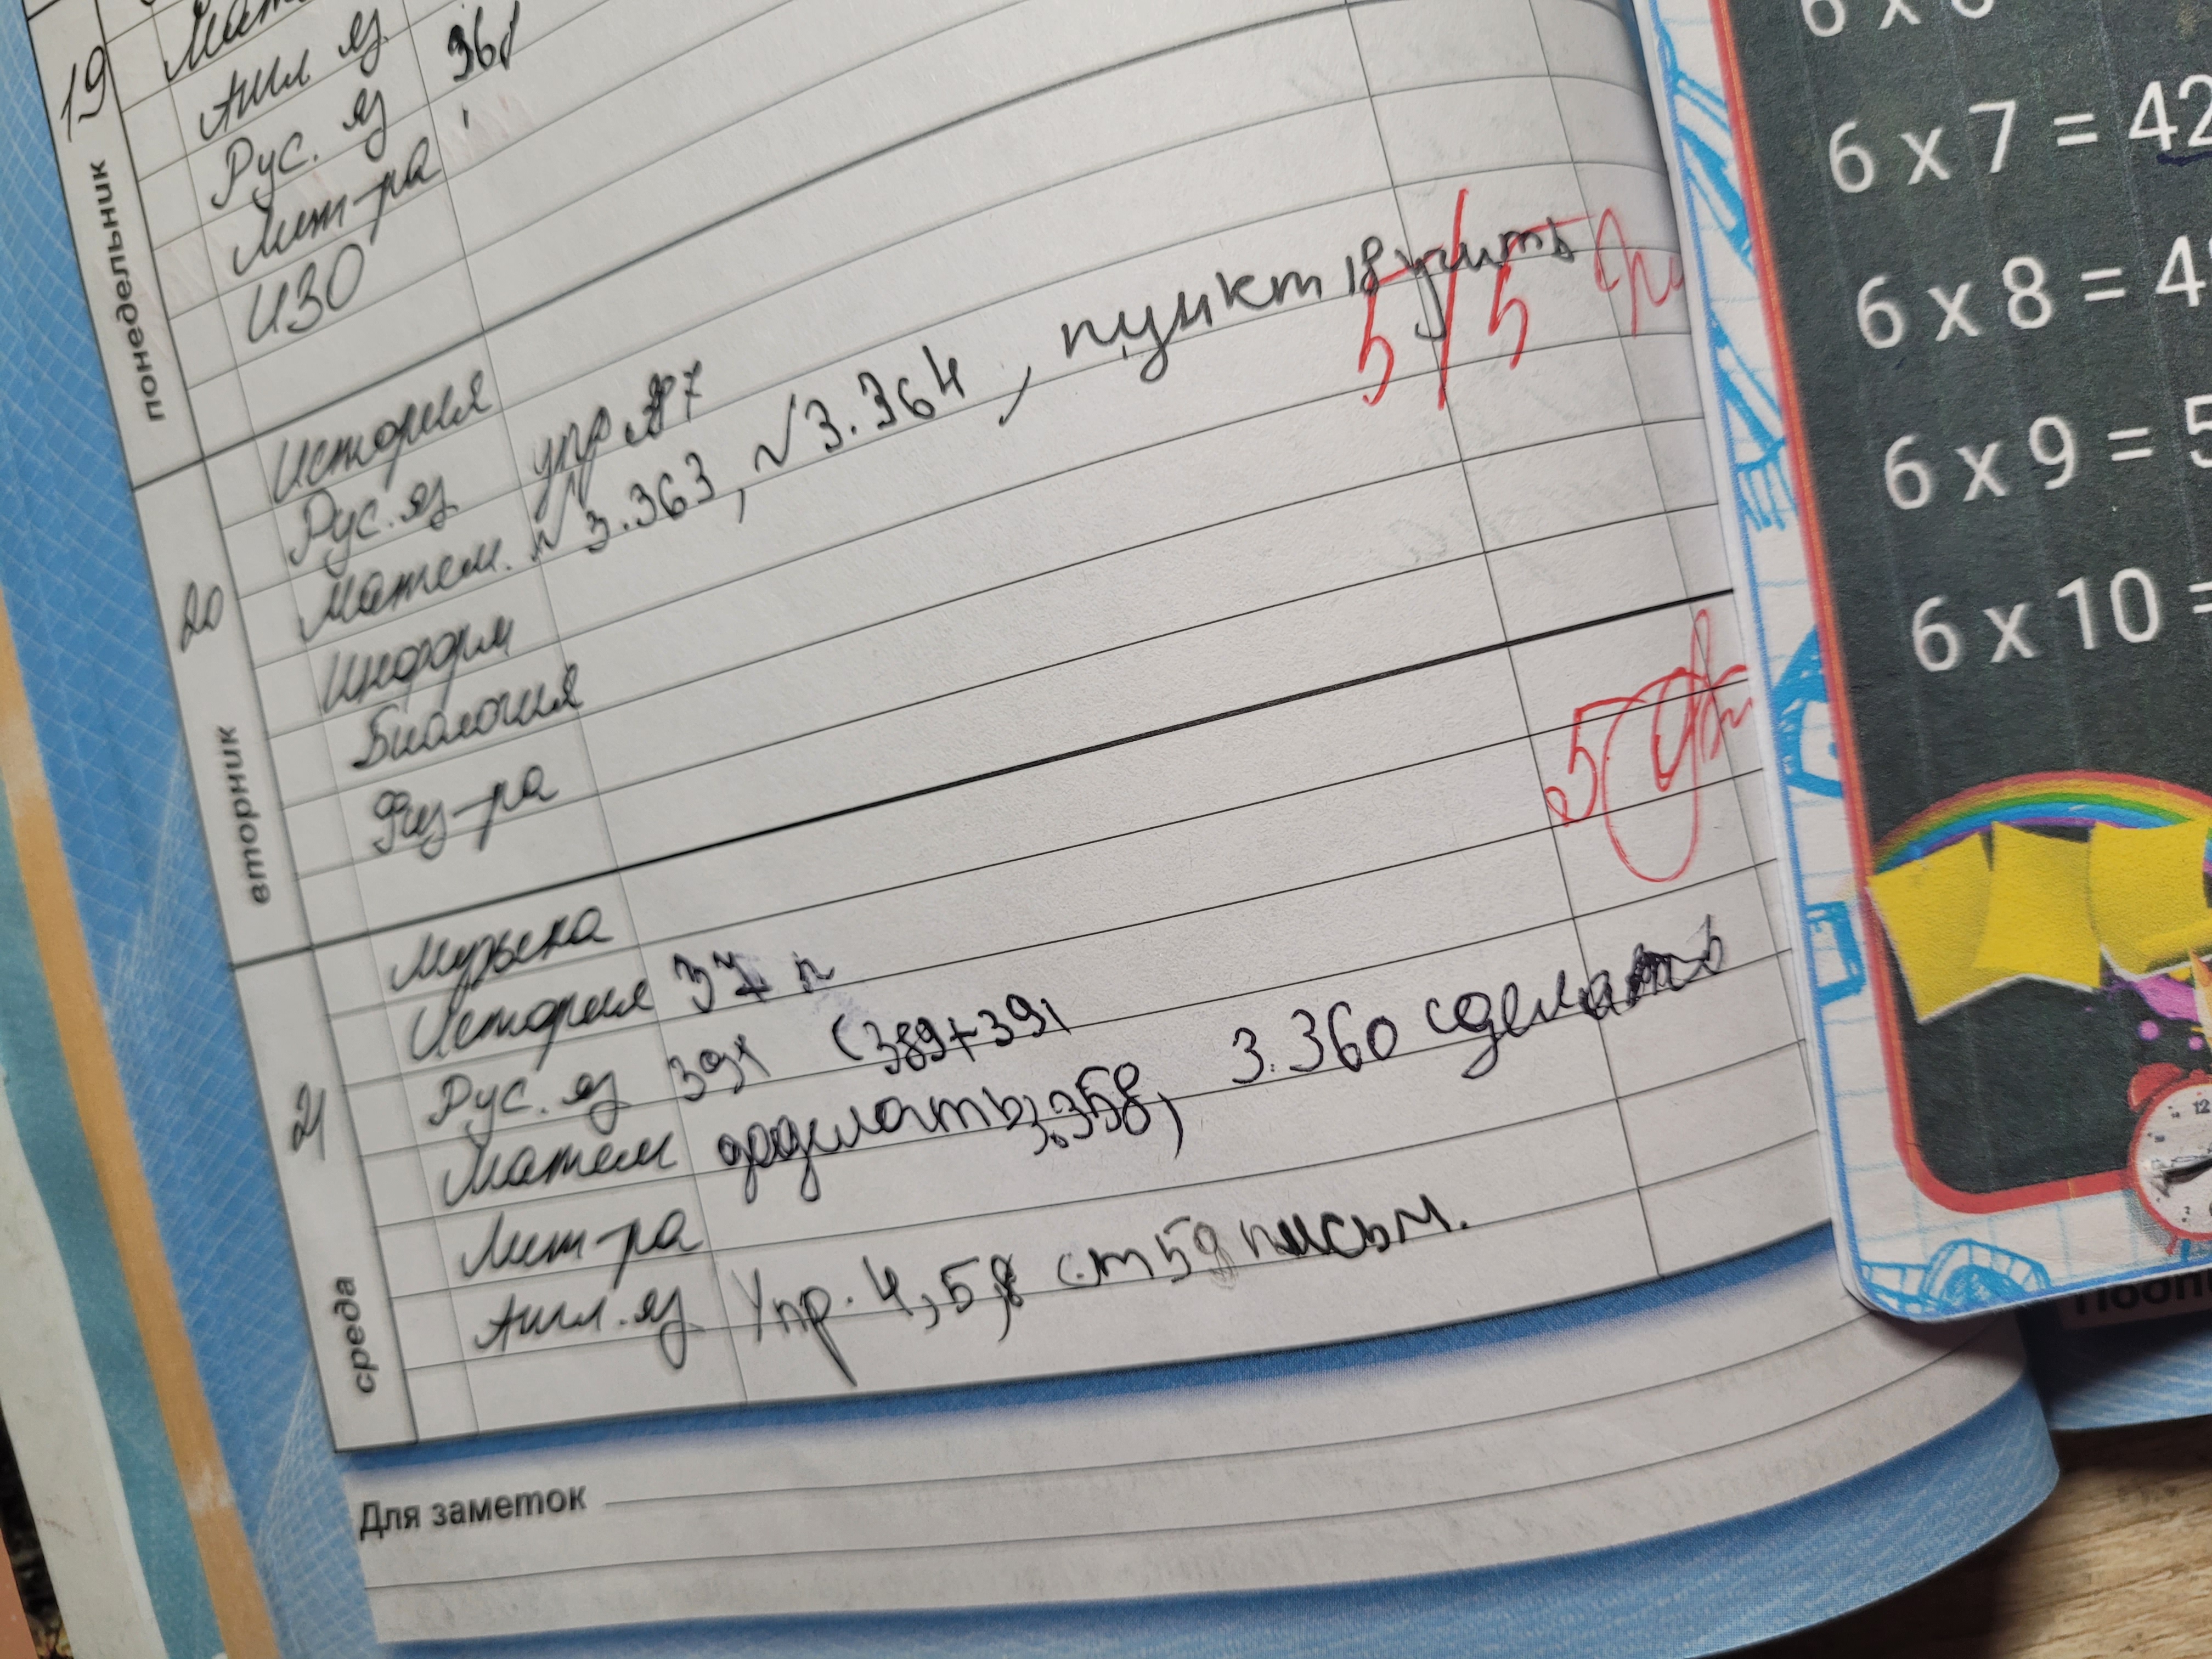 19
понедельник
Англ яз
Рус. яз
Лит-ра
ИЗО
20
вторник
История
Рус. яз упр
Матем. №3.363, №3.364, пункт 18 учить
5/5
Информ
Биология
Физ-ра
21
среда
Музыка
5
История 37 п
Рус. яз 391 (389+391
Матем доделать 3.358, 3.360 сделать
Лит-ра
Англ. яз Упр. 4,5, ст 59 письм.
Для заметок
6 x 7 = 42
6 x 8 = 4
6 x 9 = 5
6 x 10 =
12